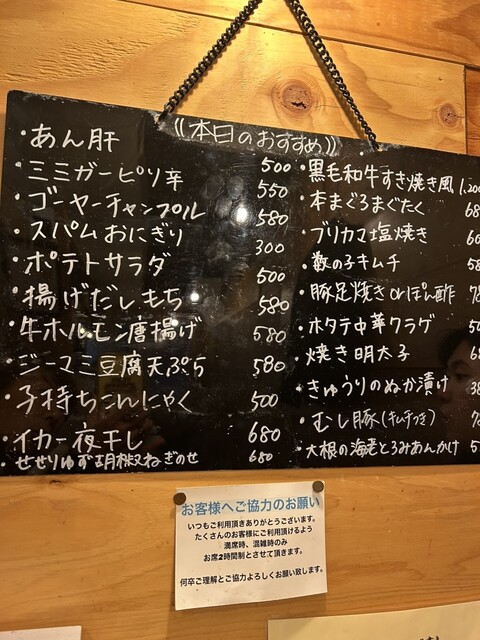 《本日のおすすめ》
・あん肝 500
・ミミガーピリ辛 550
・ゴーヤーチャンプル 580
・スパムおにぎり 300
・ポテトサラダ 500
・揚げだしもち 580
・牛ホルモン唐揚げ 580
・ジーマミ豆腐天ぷら 580
・子持ちこんにゃく 500
・イカ一夜干し 680
・せせりゆず胡椒ねぎのせ 680
・黒毛和牛すき焼き風 1,200
・本まぐろまぐたく
・ブリカマ塩焼き
・数の子キムチ
・豚足焼きorぽん酢
・ホタテ中華クラゲ
・焼き明太子
・きゅうりのぬか漬け
・むし豚(キムチつき)
・大根の海老とろみあんかけ
お客様へご協力のお願い
いつもご利用頂きありがとうございます。
たくさんのお客様にご利用頂けるよう
満席時、混雑時のみ
お席2時間制とさせて頂きます。
何卒ご理解とご協力よろしくお願い致します。